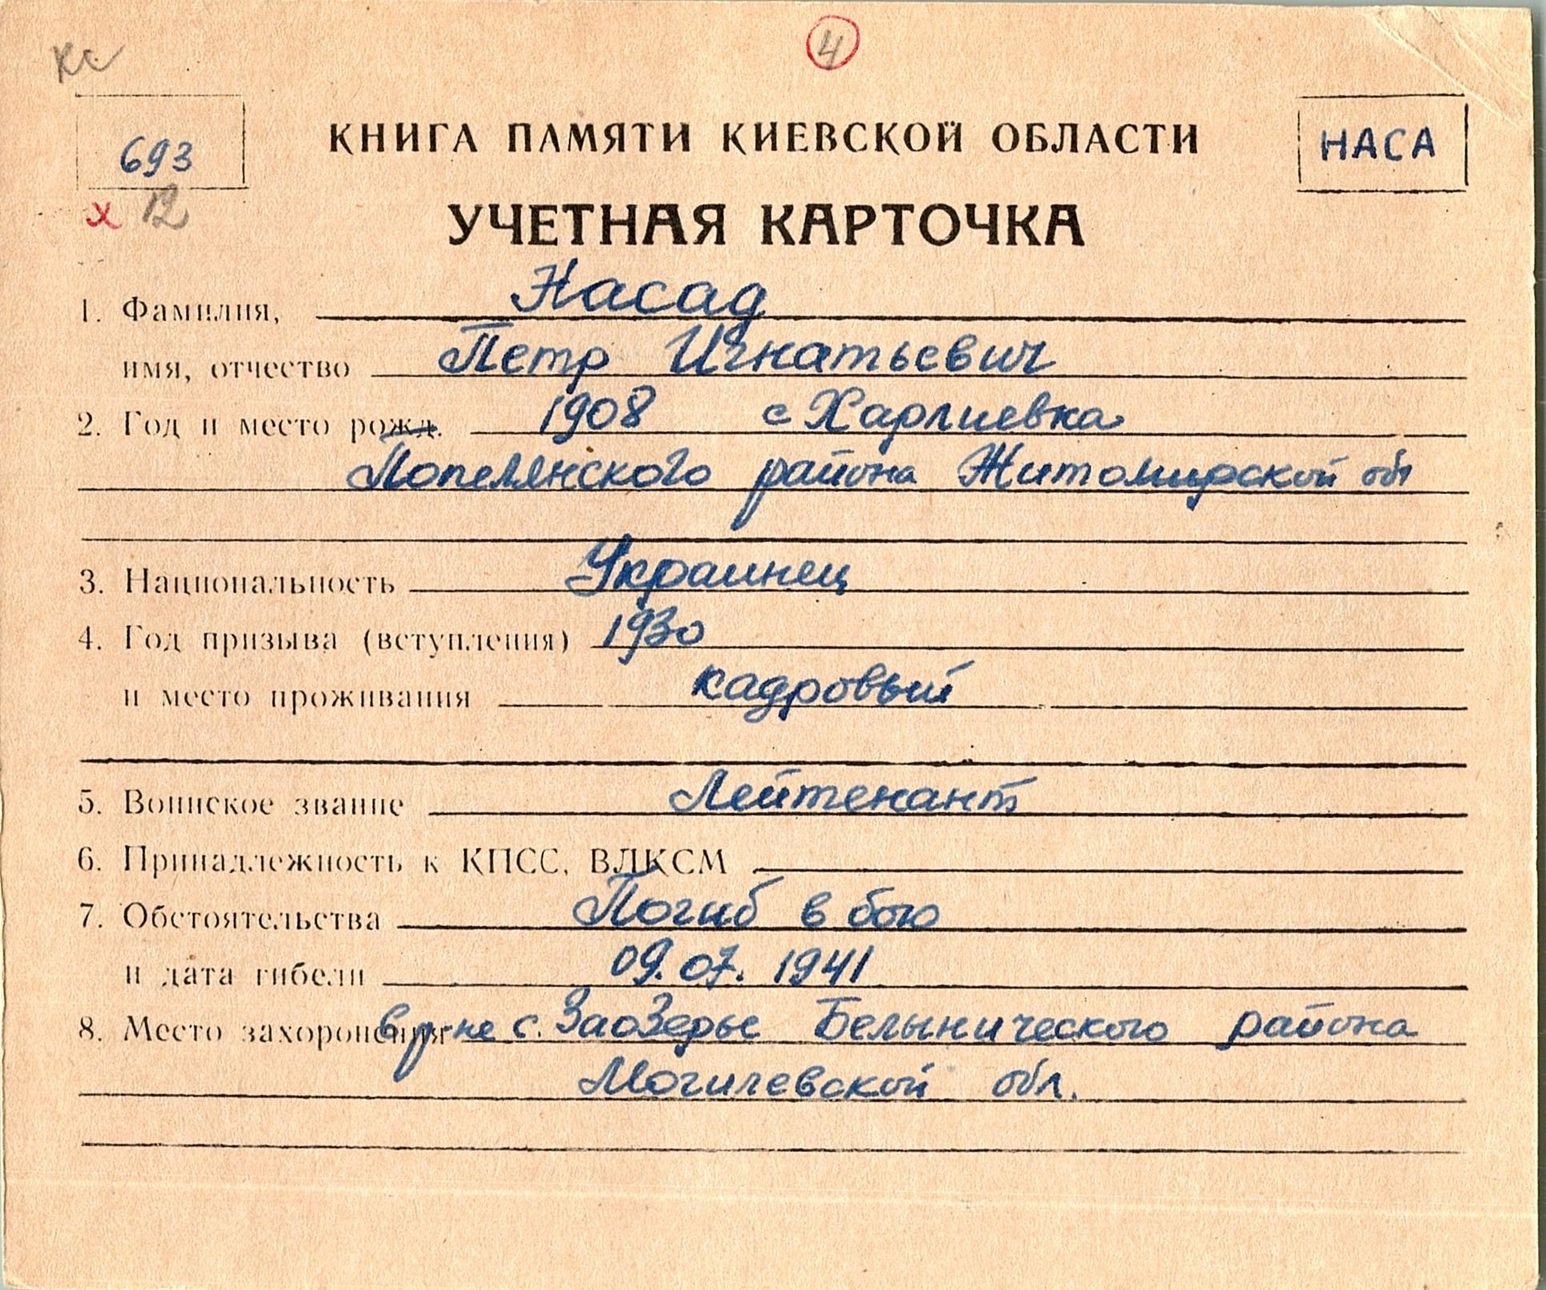 КС
4
693
КНИГА ПАМЯТИ КИЕВСКОЙ ОБЛАСТИ
НАСА
х 12
УЧЕТНАЯ КАРТОЧКА
1. Фамилия, Насад
имя, отчество Петр Игнатьевич
2. Год и место рожд. 1908 с Харлиевка
Попелянского района Житомирской обл
3. Национальность Украинец
4. Год призыва (вступления) 1930
и место проживания кадровый
5. Воинское звание Лейтенант
6. Принадлежность к КПСС, ВЛКСМ
7. Обстоятельства Погиб в бою
и дата гибели 09.07.1941
8. Место захоронения в р-не с. Заозерье Белыничского района
Могилевской обл.